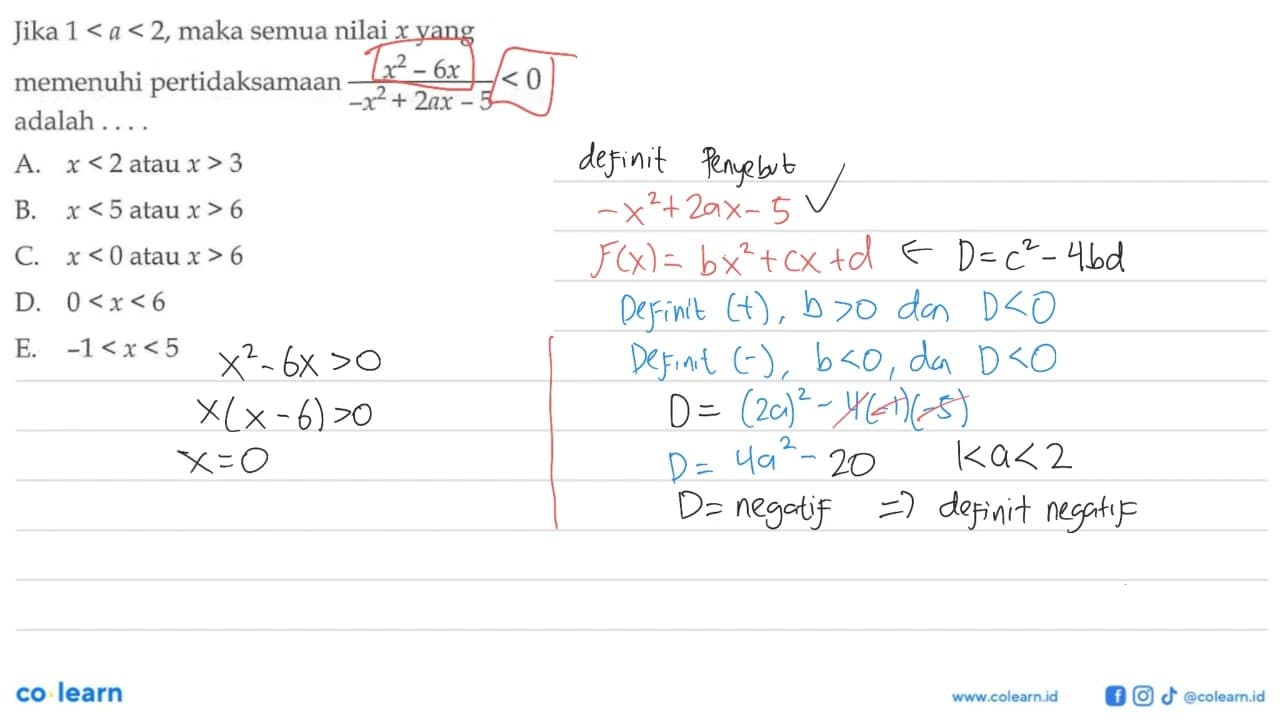 Jika 1 < a < 2, maka semua nilai x yang
memenuhi pertidaksamaan \frac{x² – 6x}{–x² + 2ax – 5} < 0
adalah . . . .
A. x < 2 atau x > 3
B. x < 5 atau x > 6
C. x < 0 atau x > 6
D. 0 < x < 6
E. –1 < x < 5
x² - 6x > 0
x(x - 6) > 0
x = 0
definit Penyebut
-x² + 2ax - 5 ✓
F(x) = bx² + cx + d ← D = c² - 4bd
Definit (+), b > 0 dan D < 0
Definit (-), b < 0, dan D < 0
D = (2a)² - 4(-1)(-5)
D = 4a² - 20 1<a<2
D = negatif => definit negatif
co learn
www.colearn.id @colearn.id